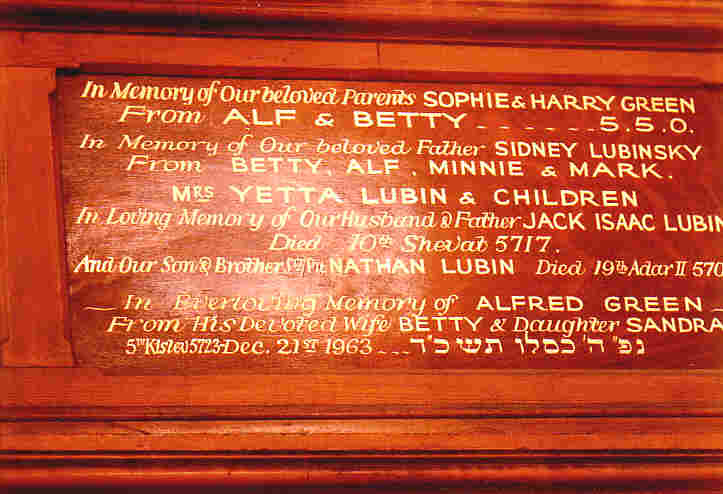 In Memory of Our beloved Parents SOPHIE & HARRY GREEN
From ALF & BETTY _ _ _ _ _ _ 5.5.0.
In Memory of Our beloved Father SIDNEY LUBINSKY
From BETTY, ALF, MINNIE & MARK.
MRS YETTA LUBIN & CHILDREN
In Loving Memory of Our Husband & Father JACK ISAAC LUBIN
Died 10th Shevat 5717.
And Our Son & Brother NATHAN LUBIN Died 19th Adar II 570
In Everloving Memory of ALFRED GREEN
From His Devoted Wife BETTY & Daughter SANDRA
5TH Kislev 5723-Dec. 21ST 1963 _ _ _ נפ" ה' כסלו תשכ"ד